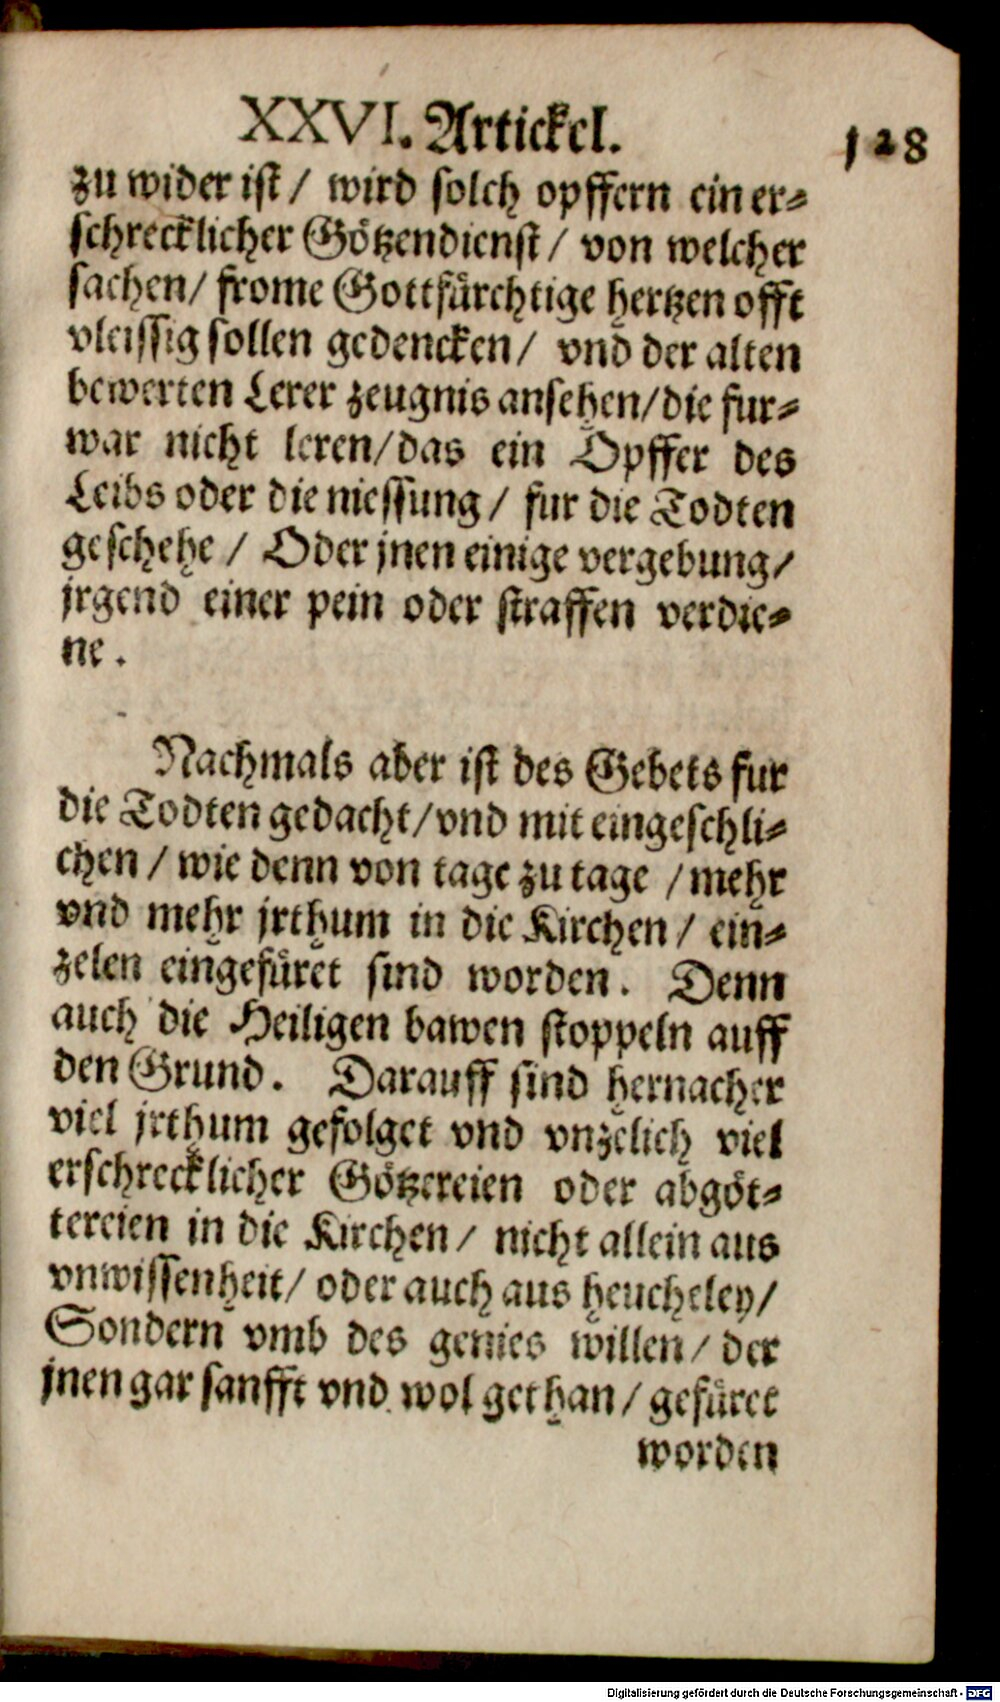 XXVI. Artickel.
128
zu wider ist / wird solch opffern ein er⸗
schrecklicher Götzendienst / von welcher
sachen / frome Gottfürchtige hertzen offt
vleissig sollen gedencken / vnd der alten
bewerten Lerer zeugnis ansehen / die fur⸗
war nicht leren / das ein Opffer des
Leibs oder die niessung / fur die Todten
geschehe / Oder jnen einige vergebung /
jrgend einer pein oder straffen verdie⸗
ne .
Nachmals aber ist des Gebets fur
die Todten gedacht / vnd mit eingeschli⸗
chen / wie denn von tage zu tage / mehr
vnd mehr jrthum in die Kirchen / ein⸗
zelen eingefüret sind worden . Denn
auch die Heiligen bawen stoppeln auff
den Grund . Darauff sind hernacher
viel jrthum gefolget vnd vnzelich viel
erschrecklicher Götzereien oder abgöt⸗
tereien in die Kirchen / nicht allein aus
vnwissenheit / oder auch aus heucheley /
Sondern vmb des genies willen / der
jnen gar sanfft vnd wol gethan / gefüret
worden
Digitalisierung gefördert durch die Deutsche Forschungsgemeinschaft - DFG